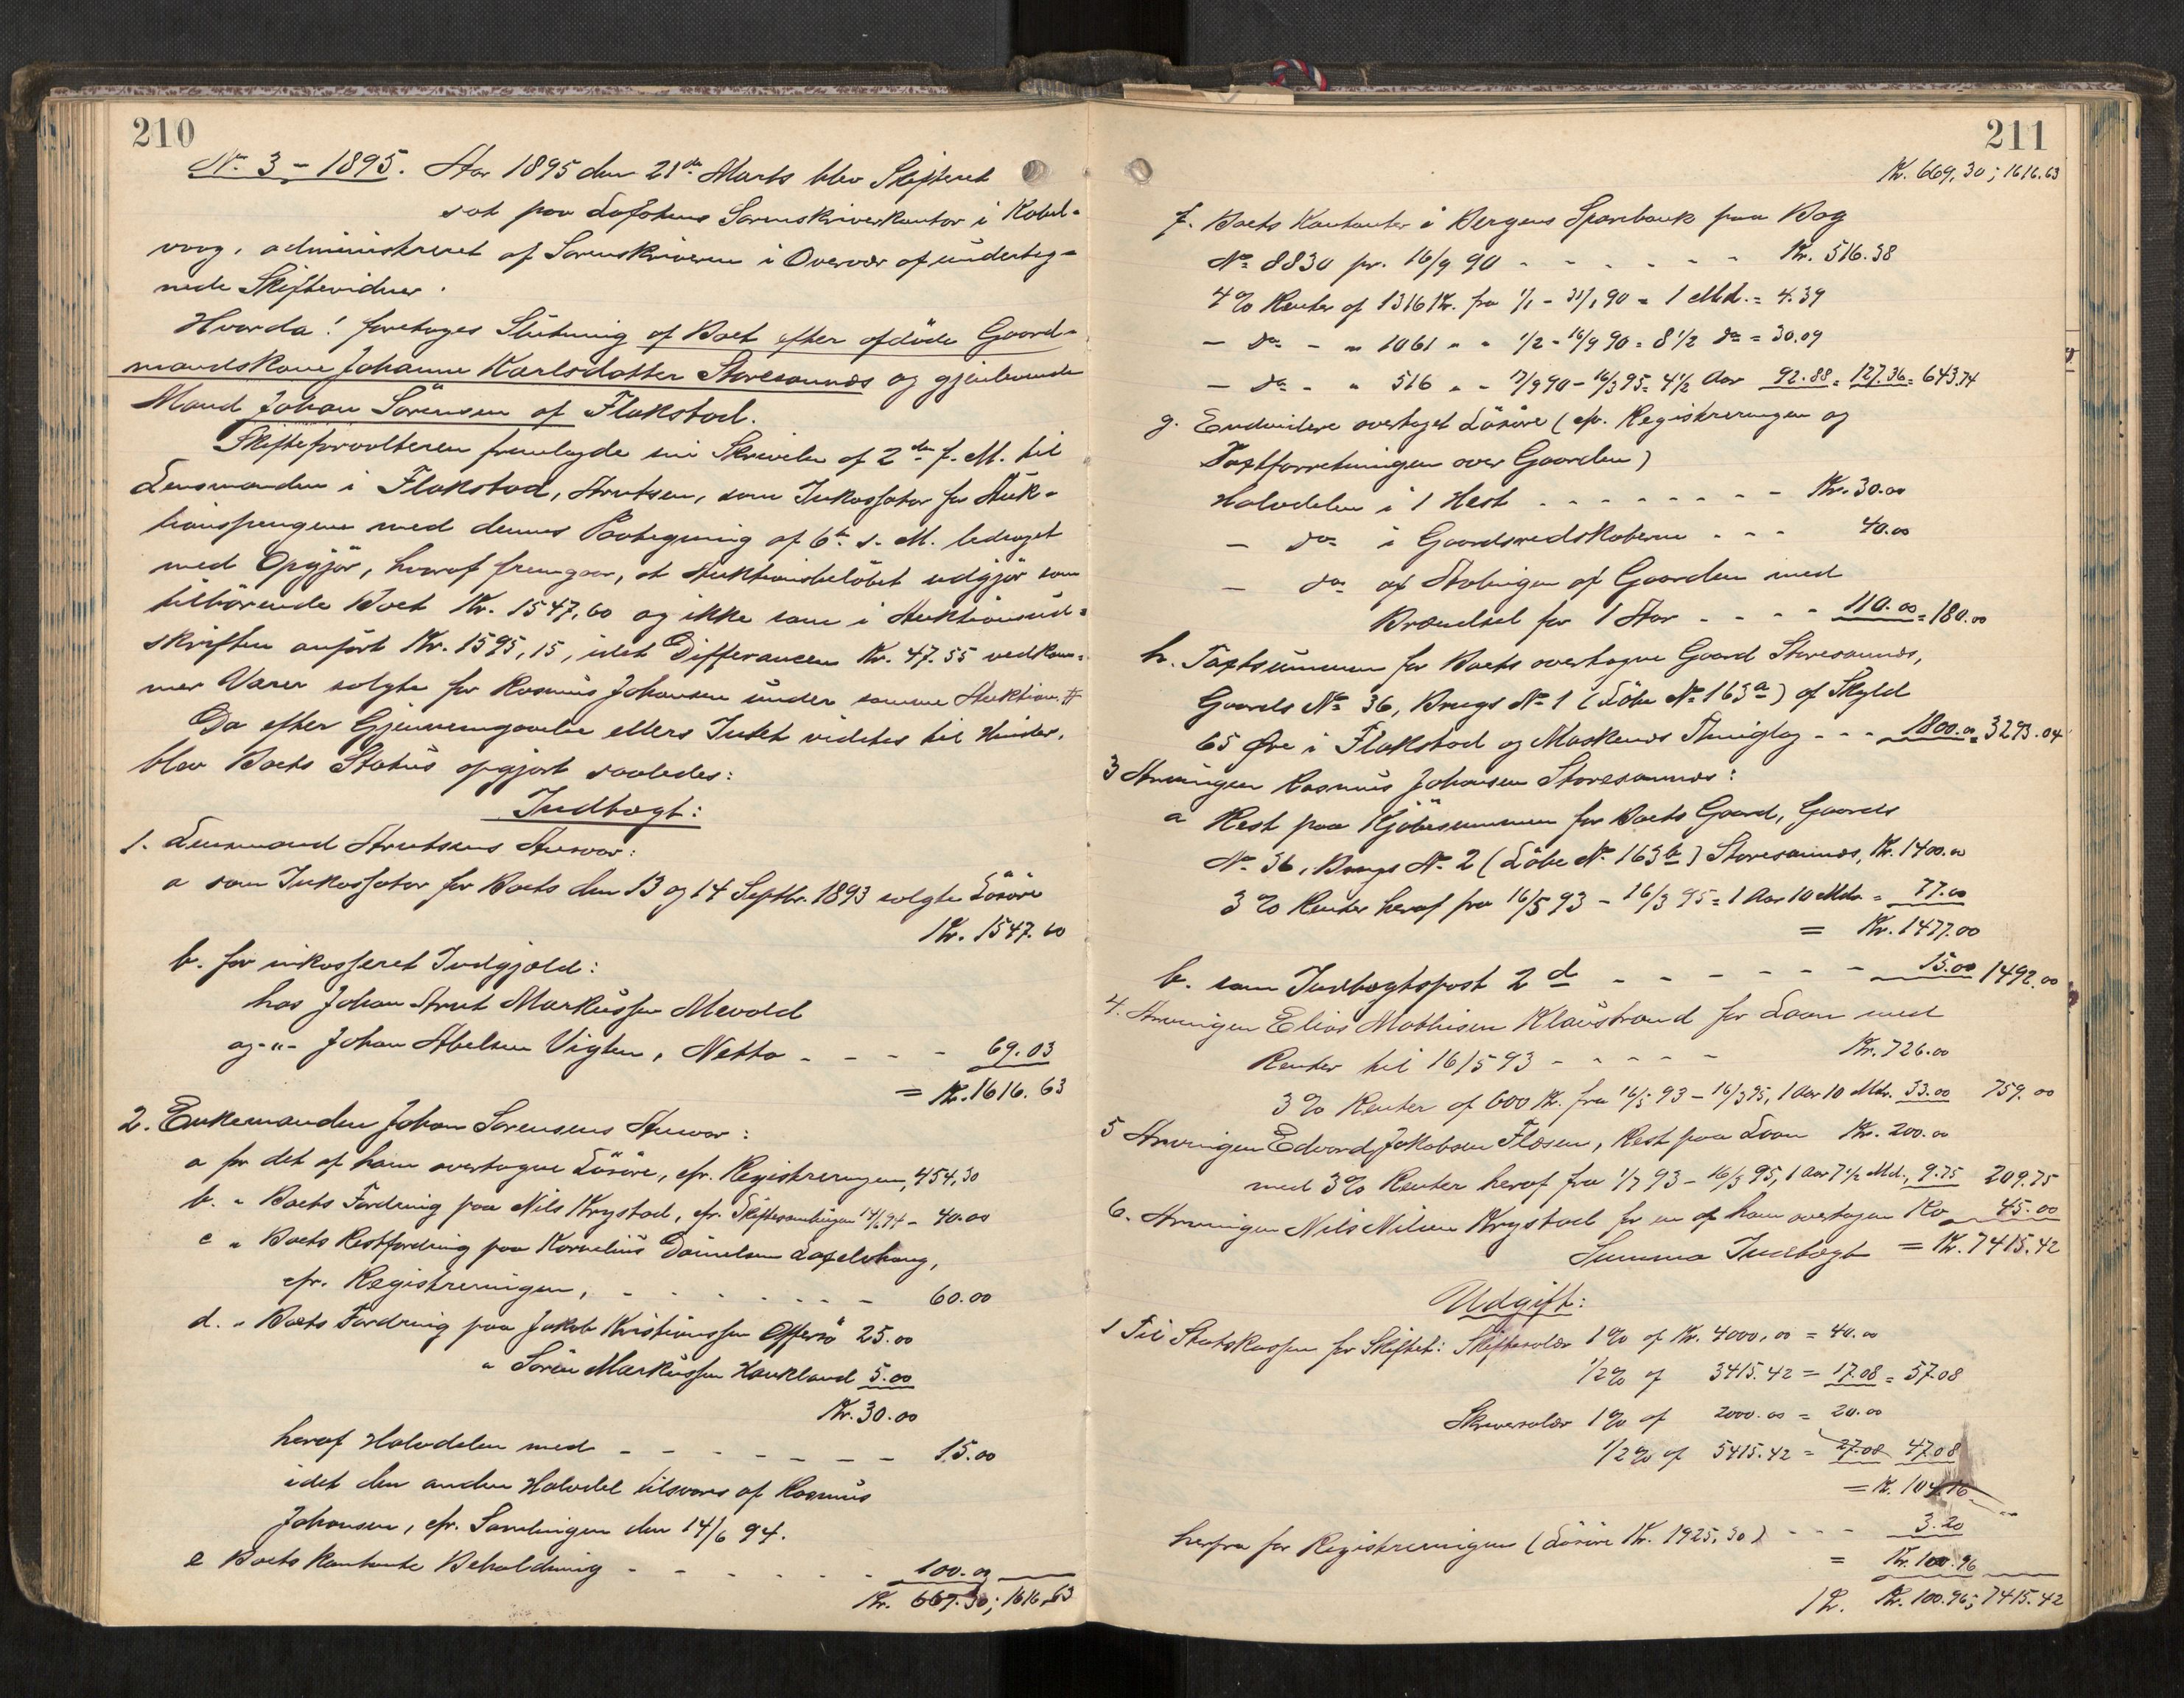 210
No 3 - 1895. Aar 1895 den 21de Marts blev Skifteret
sat paa Lofotens Sorenskriverkontor i Kabel-
vaag, administreret af Sorenskriveren i Overvær af underteg-
nede Skiftevidner.
Hvorda! foretoges Slutning af Boet efter afdøde Gaard-
mandskone Johanne Karlsdatter Storesannes og gjenlevende
Mand Johan Sörensen af Flakstad.
Skifteforvalteren fremlagde sin Skrivelse af 2den f. M. til
Lensmanden i Flakstad, Arntsen, som Inkassator for Auk-
tionspengene med dennes Paategning af 6te s. M. bedraget
med Opgjör, hvoraf fremgaar, at Auktionsbelöbet udgjör som
tilhörende Boet Kr. 1547,60 og ikke som i Auktionsud-
skriften anfört Kr. 1595,15, idet Differancen Kr. 47.55 vedkom-
mer Varer solgte for Rasmus Johansen under samme Auktion. #
Da efter Gjennemgaaelse ellers Intet vidstes til Hinder,
blev Boets Status opgjort saaledes:
Indtægt:
1. Lensmand Arntsens Ansvar:
a som Inkassator for Boets den 13 og 14 Septbr. 1893 solgte Lösöre
Kr. 1547.60
b. for inkasseret Indgjæld:
hos Johan Arnt Markussen Mevold
og -"- Johan Abelsen Vigten, Netto - - - - 69.03
= Kr. 1616.63
2. Enkemanden Johan Sorensens Ansvar:
a for det af ham overtagne Lösöre, cfr. Registreringen, 454,30
b. " Boets Fordring paa Nils Krystad, cfr. Skiftesamlingen 14/6 94 - 40.00
c " Boets Restfordring paa Kornelius Danielsen
cfr. Registreringen, - - - - - - 60.00
d. " Boets Fordring paa Jakob Kristianssen Offersö 25.00
" Sören Markussen Haukland 5.00
Kr. 30.00
heraf Halvdelen med - - - - - - 15.00
idet den anden Halvdel tilsvares af Rasmus
Johansen, cfr. Samlingen den 14/6 94.
e Boets kontante Beholdning - - - - - - 100.00
Kr. 669.30; 1616.63
211
Kr. 669,30; 1616.63
f. Boets Kontanter i Bergens Sparebank paa Bog
No 8830 pr. 16/9 90 - - - - - - Kr. 516.38
4 % Renter af 1316 Kr. fra 1/1 - 31/1 90 = 1 Md. = 4.39
- do - " 1061 " " 1/2 - 16/9 90 = 8 1/2 do = 30.09
- do - " 516 " - 17/9 90 - 16/3 95 = 4 1/2 Aar 92.88 = 127.36 = 643.74
g. Endvidere overtaget Lösöre (cfr. Registreringen og
Taxtforretningen over Gaarden)
Halvdelen i 1 Hest - - - - - - - - Kr. 30.00
- do i Gaardsredskaberne - - - 40.00
- do af Avlingen af Gaarden med
Brændsel for 1 Aar - - - - 110.00 = 180.00
h. Taxtsummen for Boets overtagne Gaard Storesannes,
Gaards No 36, Brugs No 1 (Löbe No 163a) af Skyld
65 Øre i Flakstad og Moskenæs Thinglag - - - 1800.00 = 3293.04
3 Arvingen Rasmus Johansen Storesannes:
a Rest paa Kjöbesummen for Boets Gaard, Gaards
No 36, Brugs No 2 (Löbe No 163b) Storesannes, Kr. 1400.00
3 % Renter heraf fra 16/5 93 - 16/3 95 = 1 Aar 10 Mdr = 77.00
= Kr. 1477.00
b. som Indtægtspost 2 d - - - - - - 15.00 1492.00
4. Arvingen Elias Mathisen Klaustrand for Laan med
Renter til 16/5 93 - - - - - Kr. 726.00
3 % Renter af 600 Kr. fra 16/5 93 - 16/3 95, 1 Aar 10 Mdr. 33.00 759.00
5 Arvingen Edvard Jakobsen Flæsen, Rest paa Laan Kr. 200.00
med 3 % Renter heraf fra 1/7 93 - 16/3 95, 1 Aar 7 1/2 Md., 9.75 209.75
6. Arvingen Nils Nilsen Krystad for en af ham overtagen Ko 45.00
Summa Indtægt = Kr. 7415.42
Udgift:
1 Til Statskassen for Skiftet: Skiftesalær 1 % af Kr. 4000,00 = 40.00
1/2 % af 3415.42 = 17.08 = 57.08
Skriversalær 1 % af 2000.00 = 20.00
1/2 % af 5415.42 = 27.08 47.08
= Kr. 104.16
herfra for Registreringen (Lösöre Kr. 1925,30) - - - 3.20
= Kr. 100.96
Kr. 100.96; 7415.42